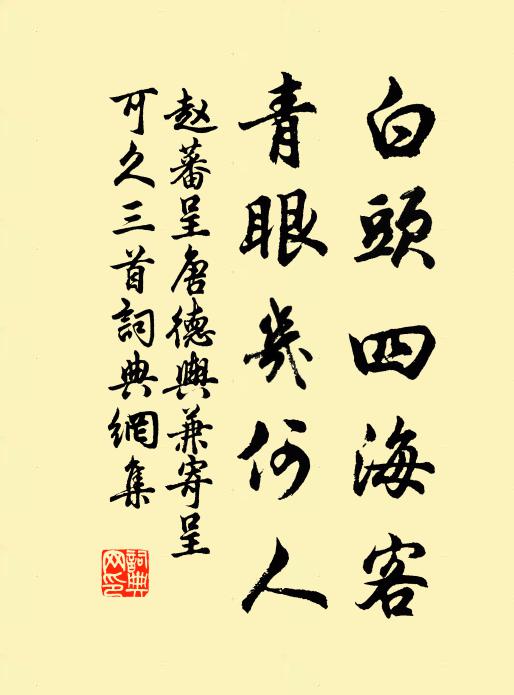 白頭四海客
青眼幾何人
赵蕃呈唐德輿兼寄呈
可久三首詞典網集
詞典網印